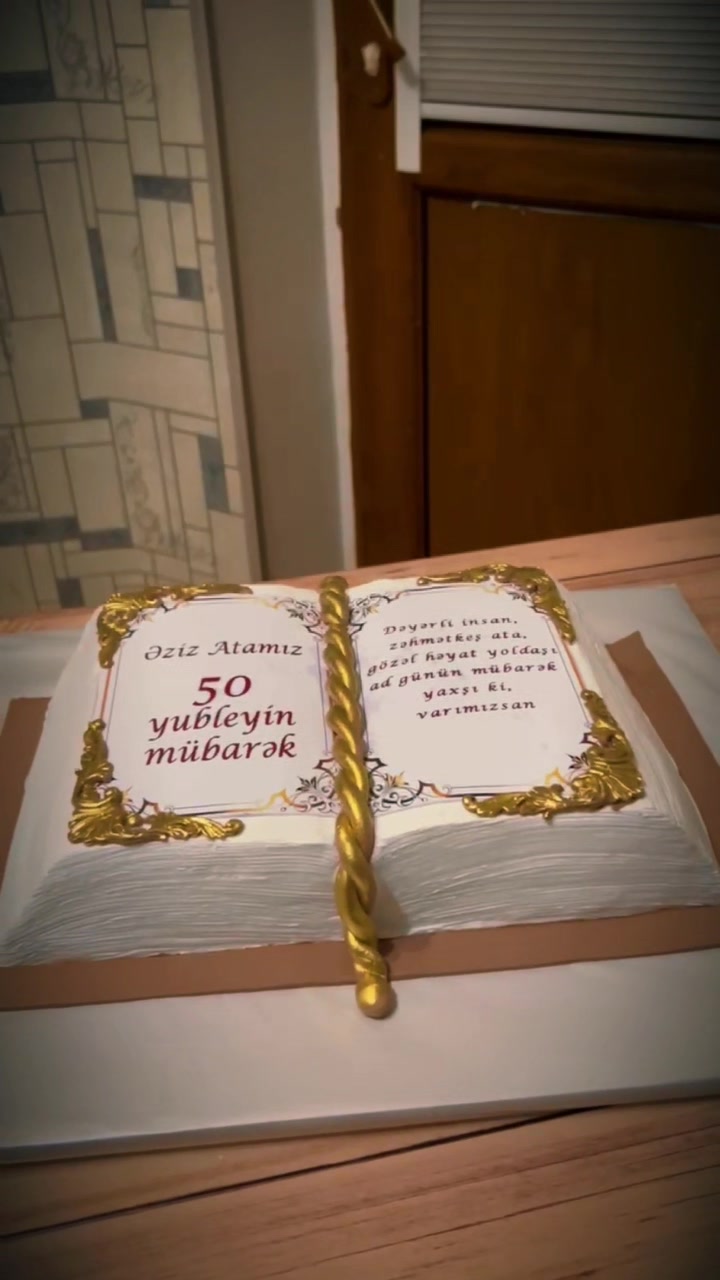 Əziz Atamız
50
yubleyin
mübarək
Dəyərli insan,
zəhmətkeş ata,
gözəl həyat yoldaşı
ad günün mübarək
yaxşı ki,
varımızsan